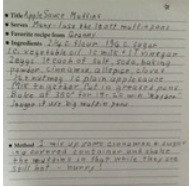 Title Apple Sauce Muffins
Serves Many: (use the small muffin pans
Favorite recipe from Granny
Ingredients 2 1/4 c flour 1 1/2 c sugar
1 c vegetable oil 1 c milk + 1 T vinegar
2 eggs 1 t each of salt, soda, baking
powder, cinnamon, allspice, cloves
2 c plain applesauce
Mix together. Put in greased pans
Bake at 350° for
larger if use big muffin pans
Method 2 mix up some cinnamon + sugar
in a covered container and shake
the muffins in that while they are
still hot - hurry!